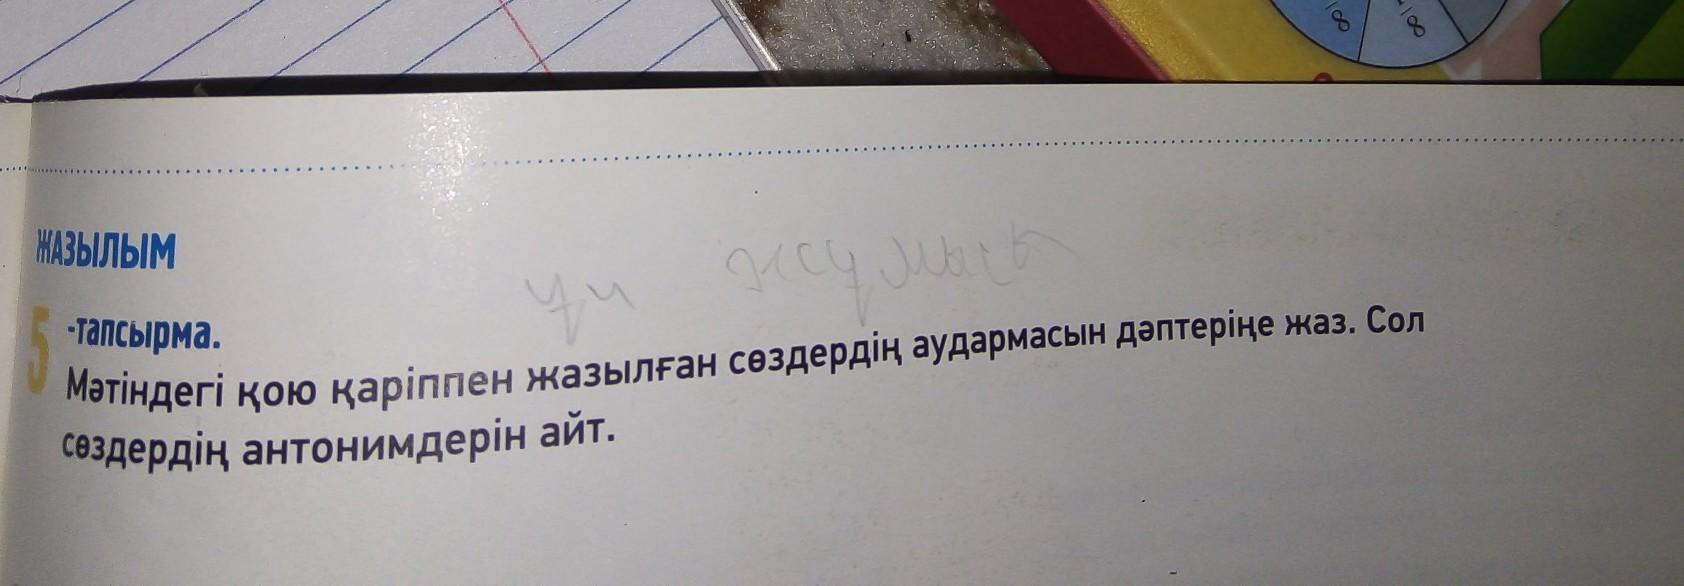 ЖАЗЫЛЫМ
үй жұмысы
5 -тапсырма.
Мәтіндегі қою қаріппен жазылған сөздердің аудармасын дәптеріңе жаз. Сол
сөздердің антонимдерін айт.